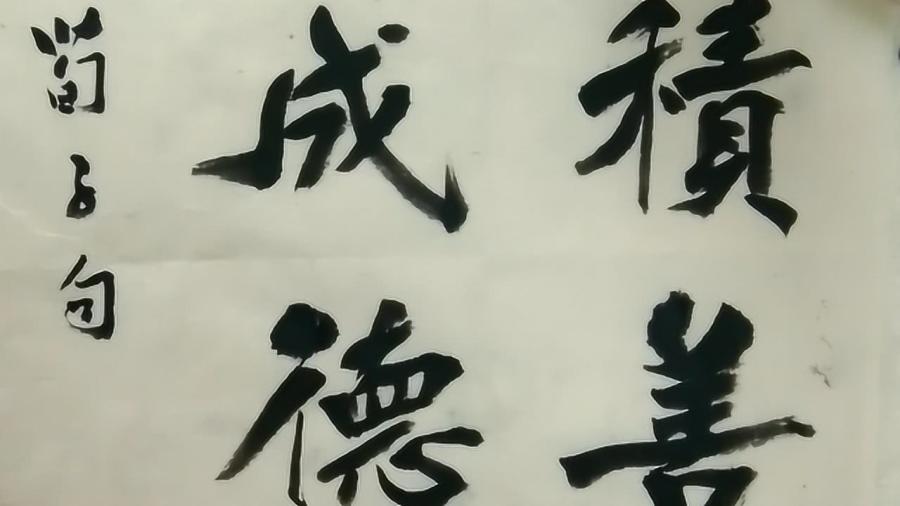 積善
成德
荀子句